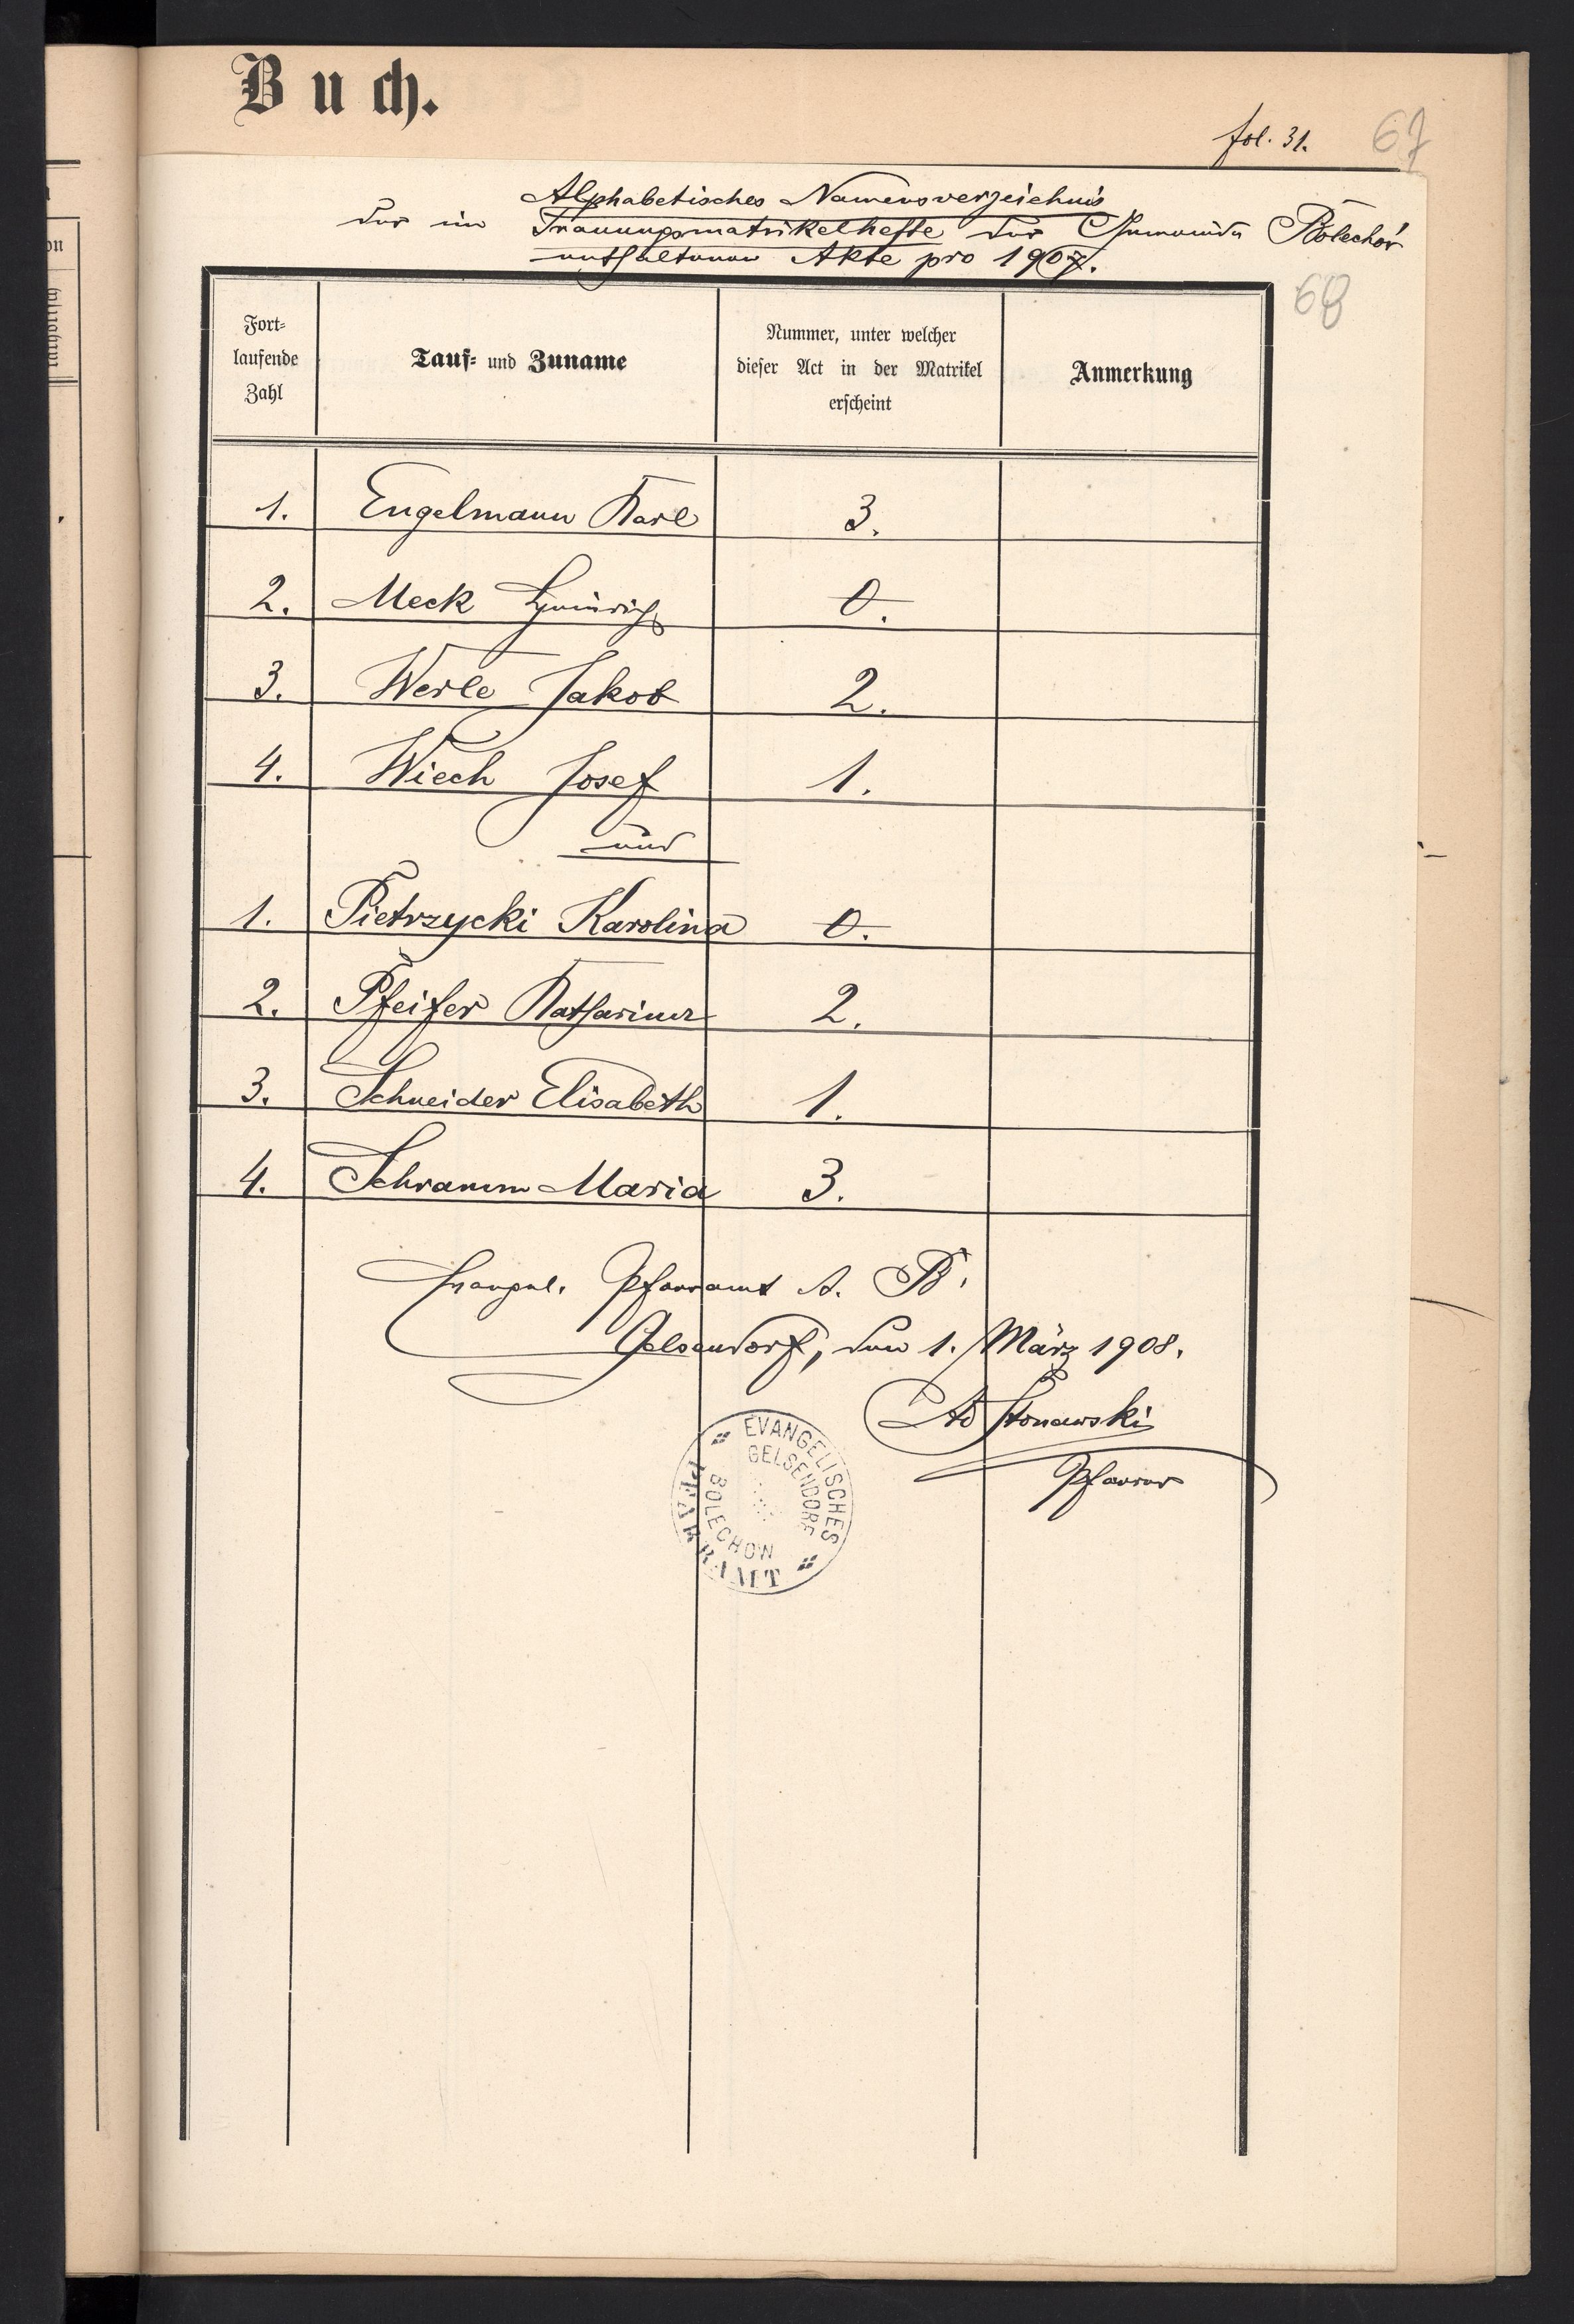 Buch.
fol. 31.
67
Alphabetisches Namensverzeichnis
der im Trauungsmatrikelhefte der Gemeinde Bolechów
enthaltenen Akte pro 1907.
68
Fort-
laufende
Zahl
Tauf- und Zuname
Nummer, unter welcher
dieser Act in der Matrikel
erscheint
Anmerkung
1. Engelmann Karl 3.
2. Meck Heinrich 0.
3. Werle Jakob 2.
4. Wiech Josef 1.
und
1. Pietrzycki Karolina 0.
2. Pfeifer Katharina 2.
3. Schneider Elisabeth 1.
4. Schramm Maria 3.
Evangel. Pfarramt A. B.
Gelsendorf, den 1. März 1908.
Stonawski
Pfarrer
EVANGELISCHES
PFARRAMT
GELSENDORF
BOLECHOW